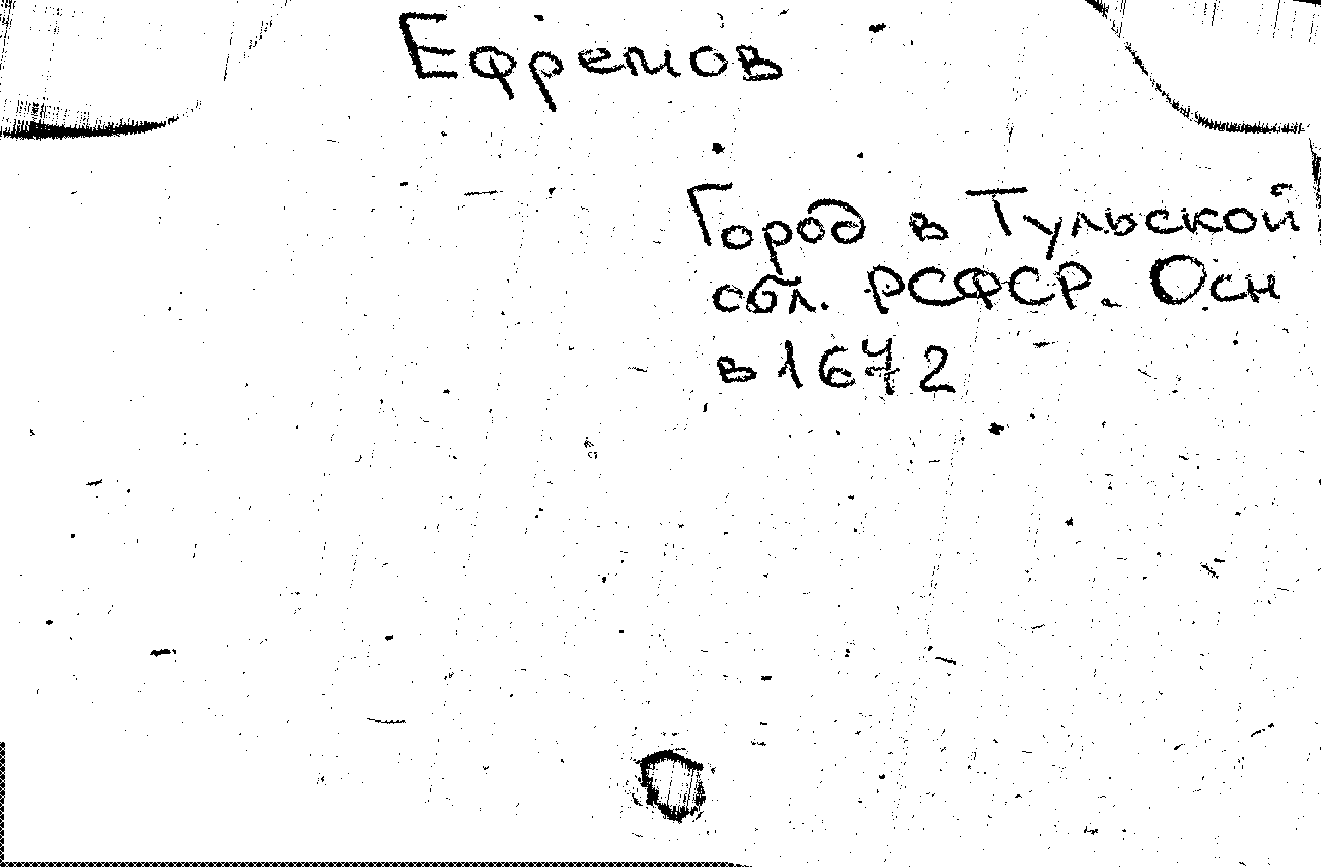 Ефремов
Город в Тульской
обл. РСФСР. Осн
в 1672